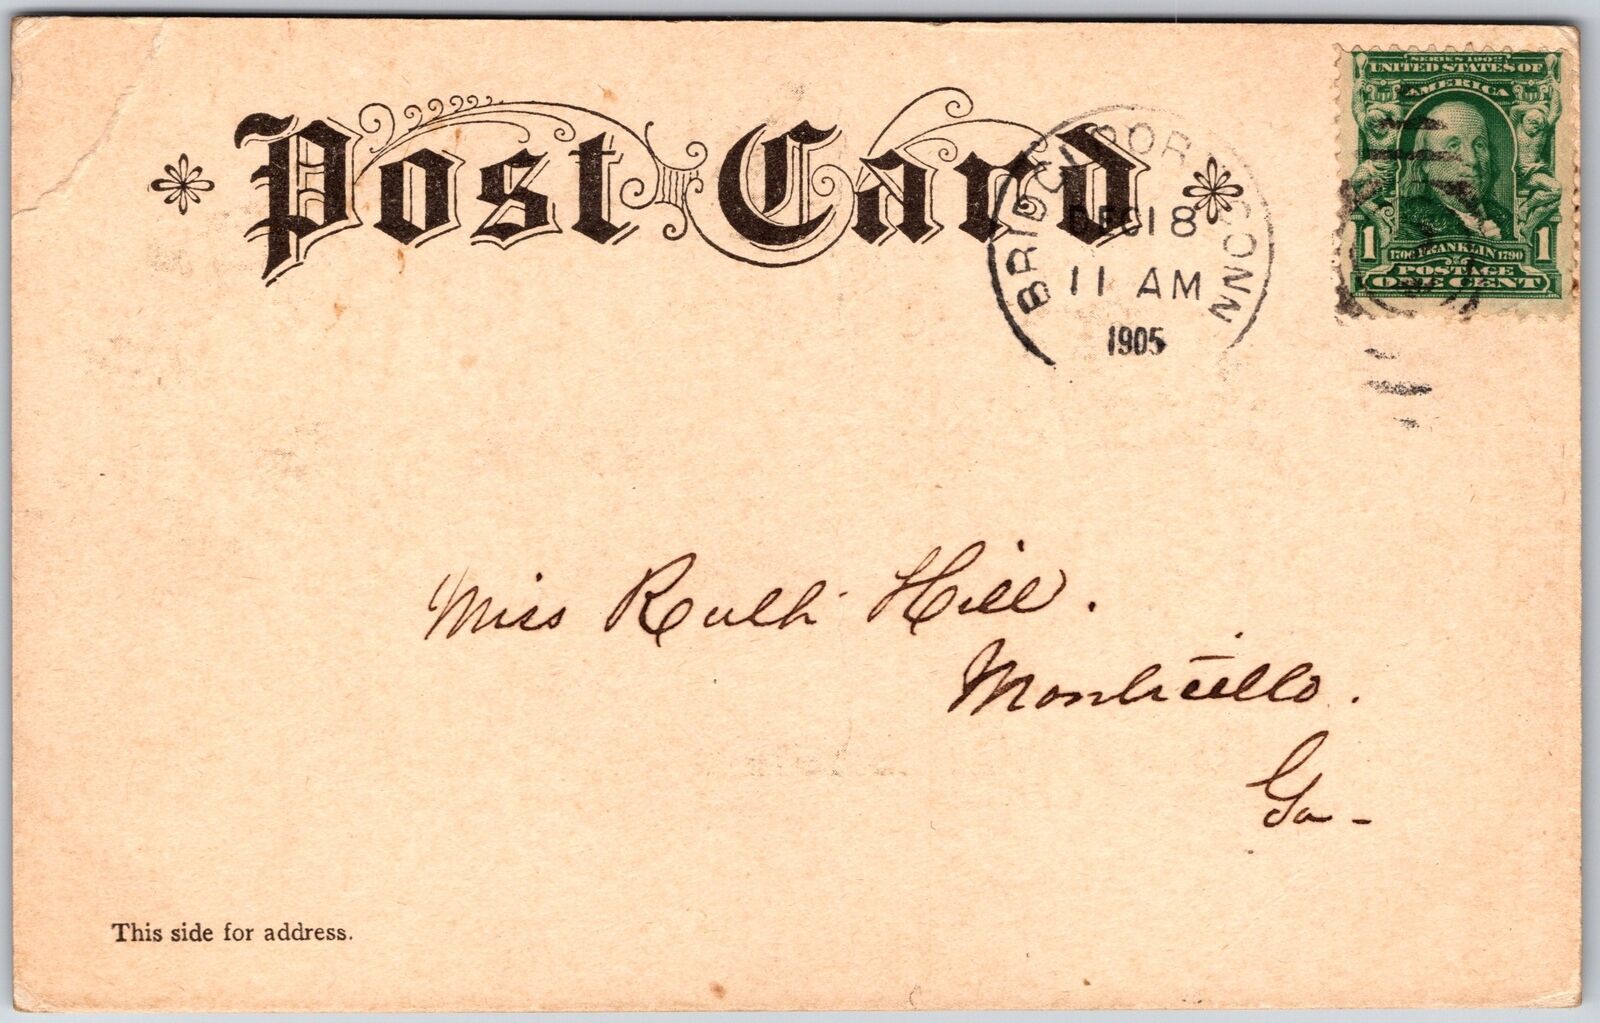 Post Card
BRIDGEPORT CONN
DEC 18
11 AM
1905
SERIES 1902
UNITED STATES OF
AMERICA
1 1706 FRANKLIN 1790 1
POSTAGE
ONE CENT
Miss Ruth Hill.
Monticello.
Ga-
This side for address.